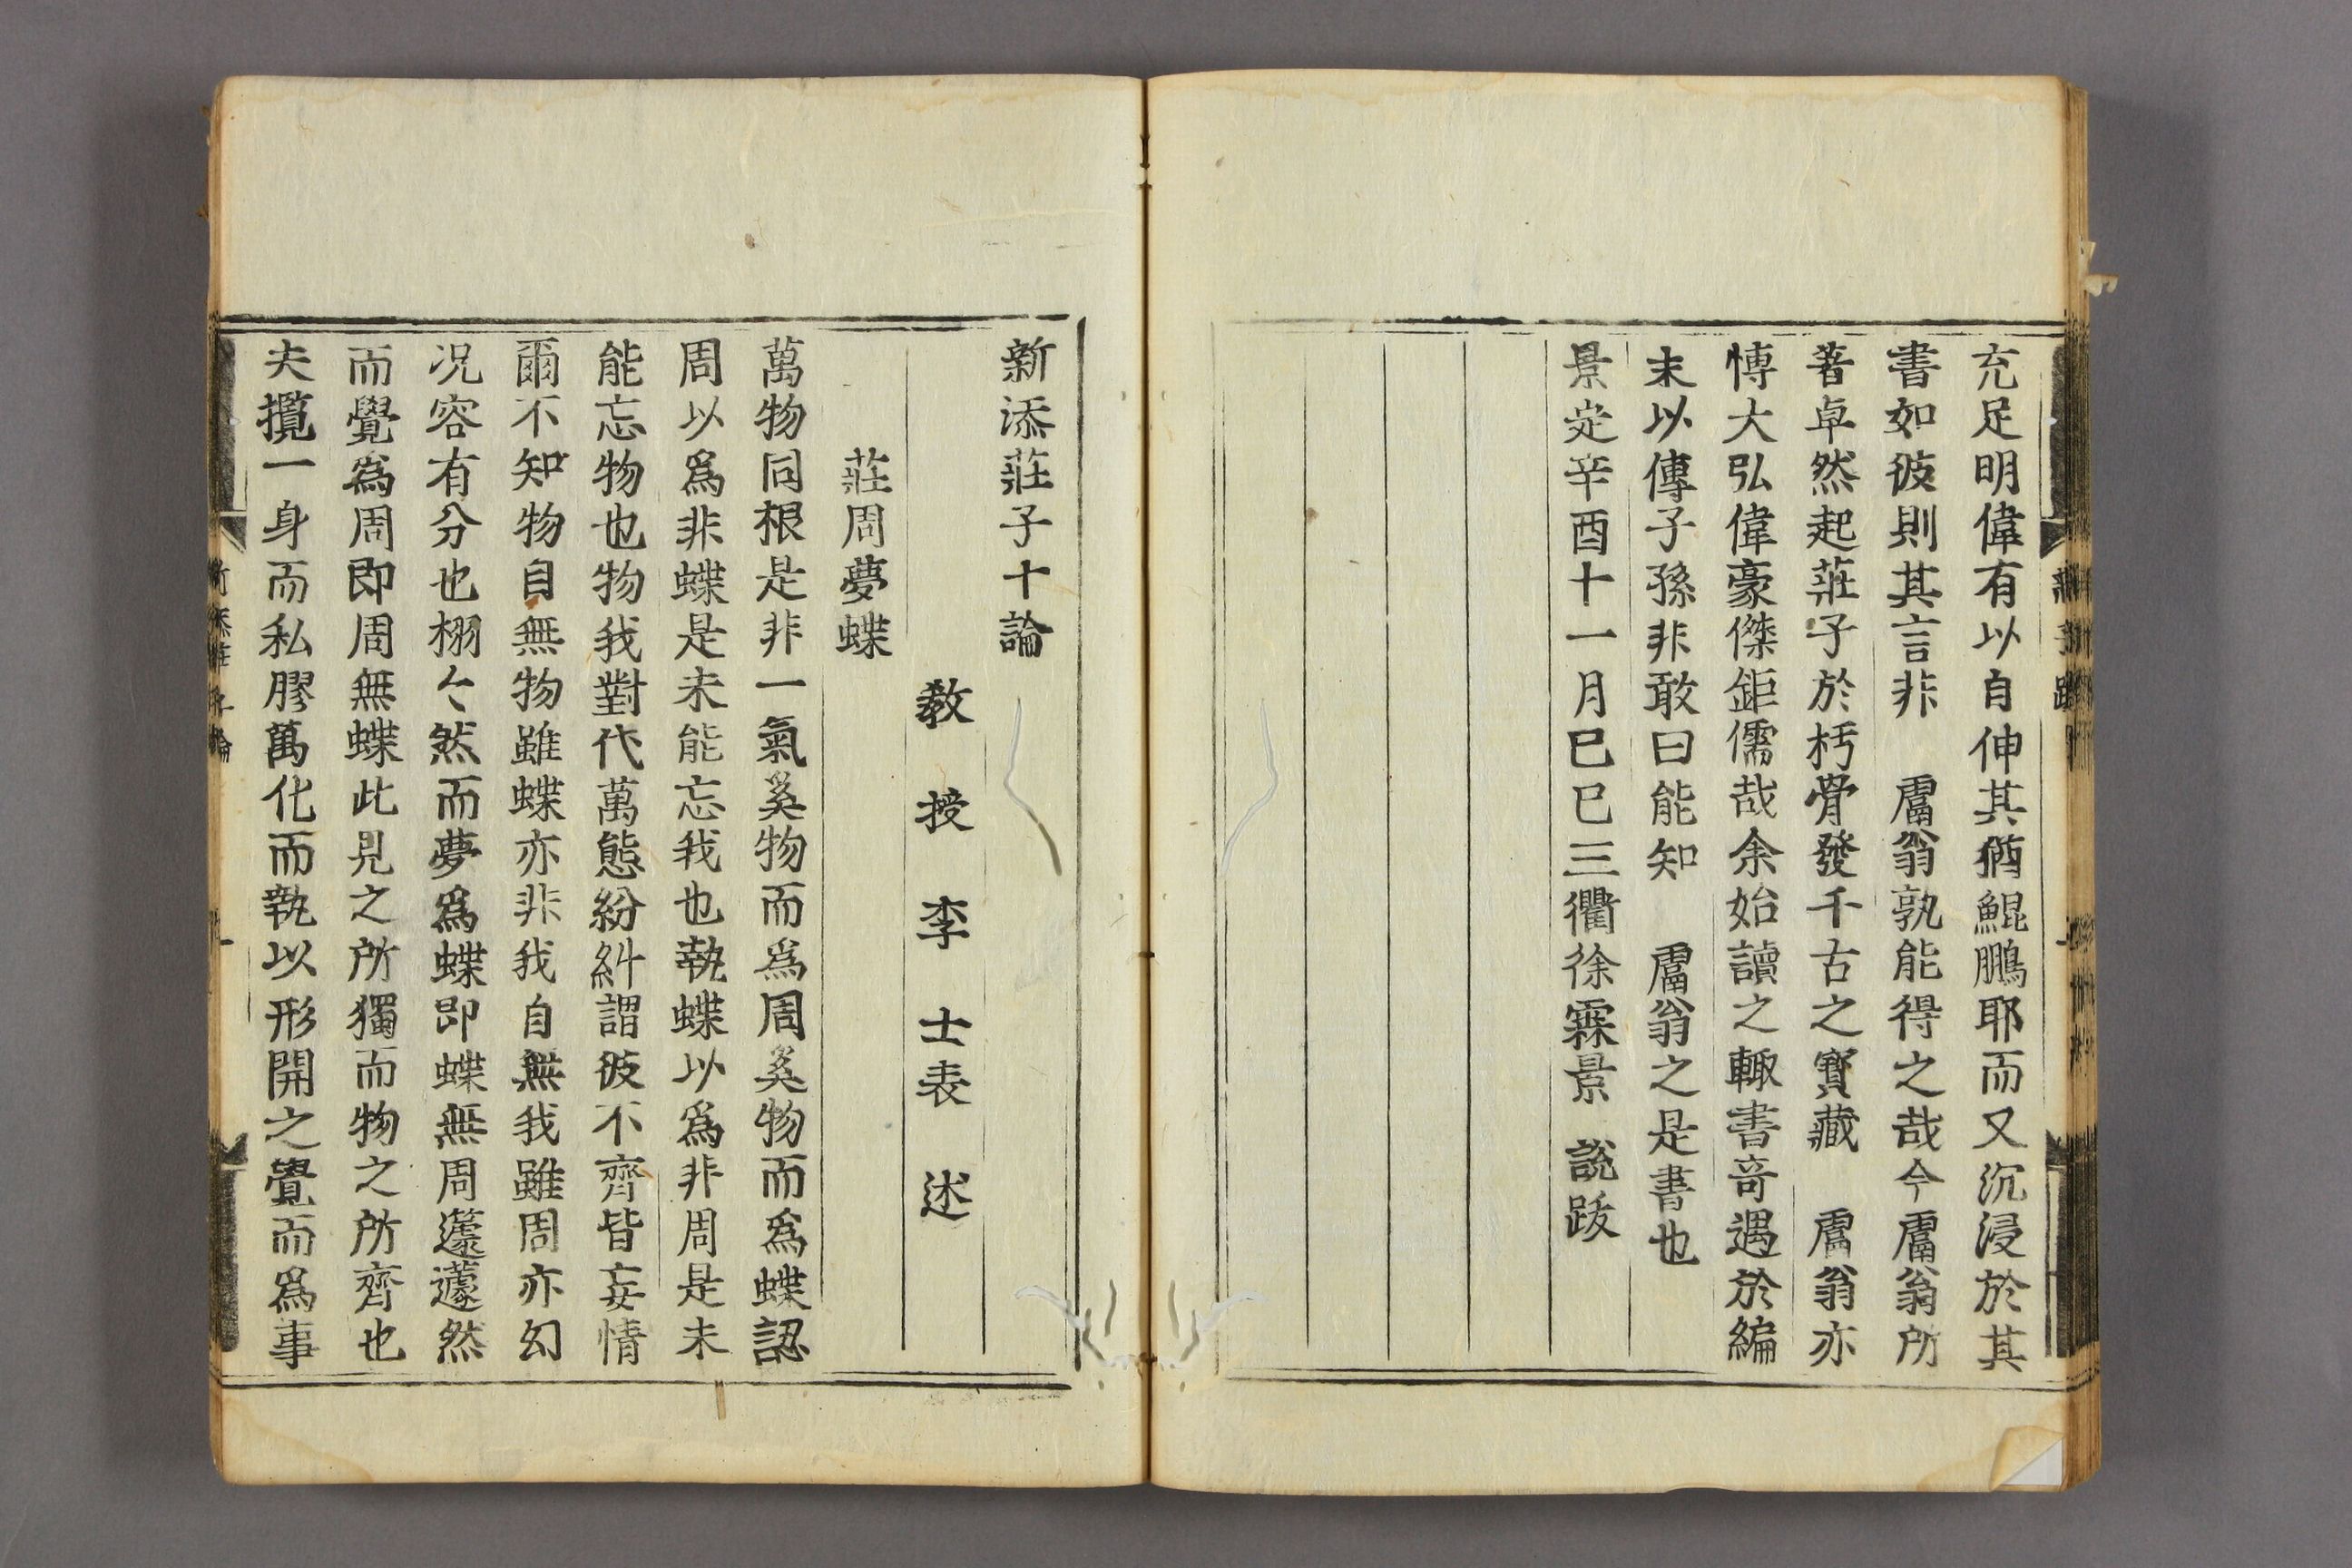 充足明偉有以自伸其猶鯤鵬耶而又沉浸於其
書如彼則其言非　鬳翁孰能得之哉今鬳翁所
著卓然起莊子於朽骨發千古之寶藏　鬳翁亦
愽大弘偉豪傑鉅儒哉余始讀之輙書竒遇於編
末以傳子孫非敢曰能知　鬳翁之是書也
景定辛酉十一月巳巳三衢徐霖景　說跋
新添莊子十論
教授李士表述
莊周夢蝶
萬物同根是非一氣奚物而爲周奚物而爲蝶認
周以爲非蝶是未能忘我也執蝶以爲非周是未
能忘物也物我對代萬態紛糾謂彼不齊皆妄情
爾不知物自無物雖蝶亦非我自無我雖周亦幻
况容有分也栩々然而夢爲蝶即蝶無周蘧蘧然
而覺爲周即周無蝶此見之所獨而物之所齊也
夫攬一身而私膠萬化而執以形開之覺而爲事